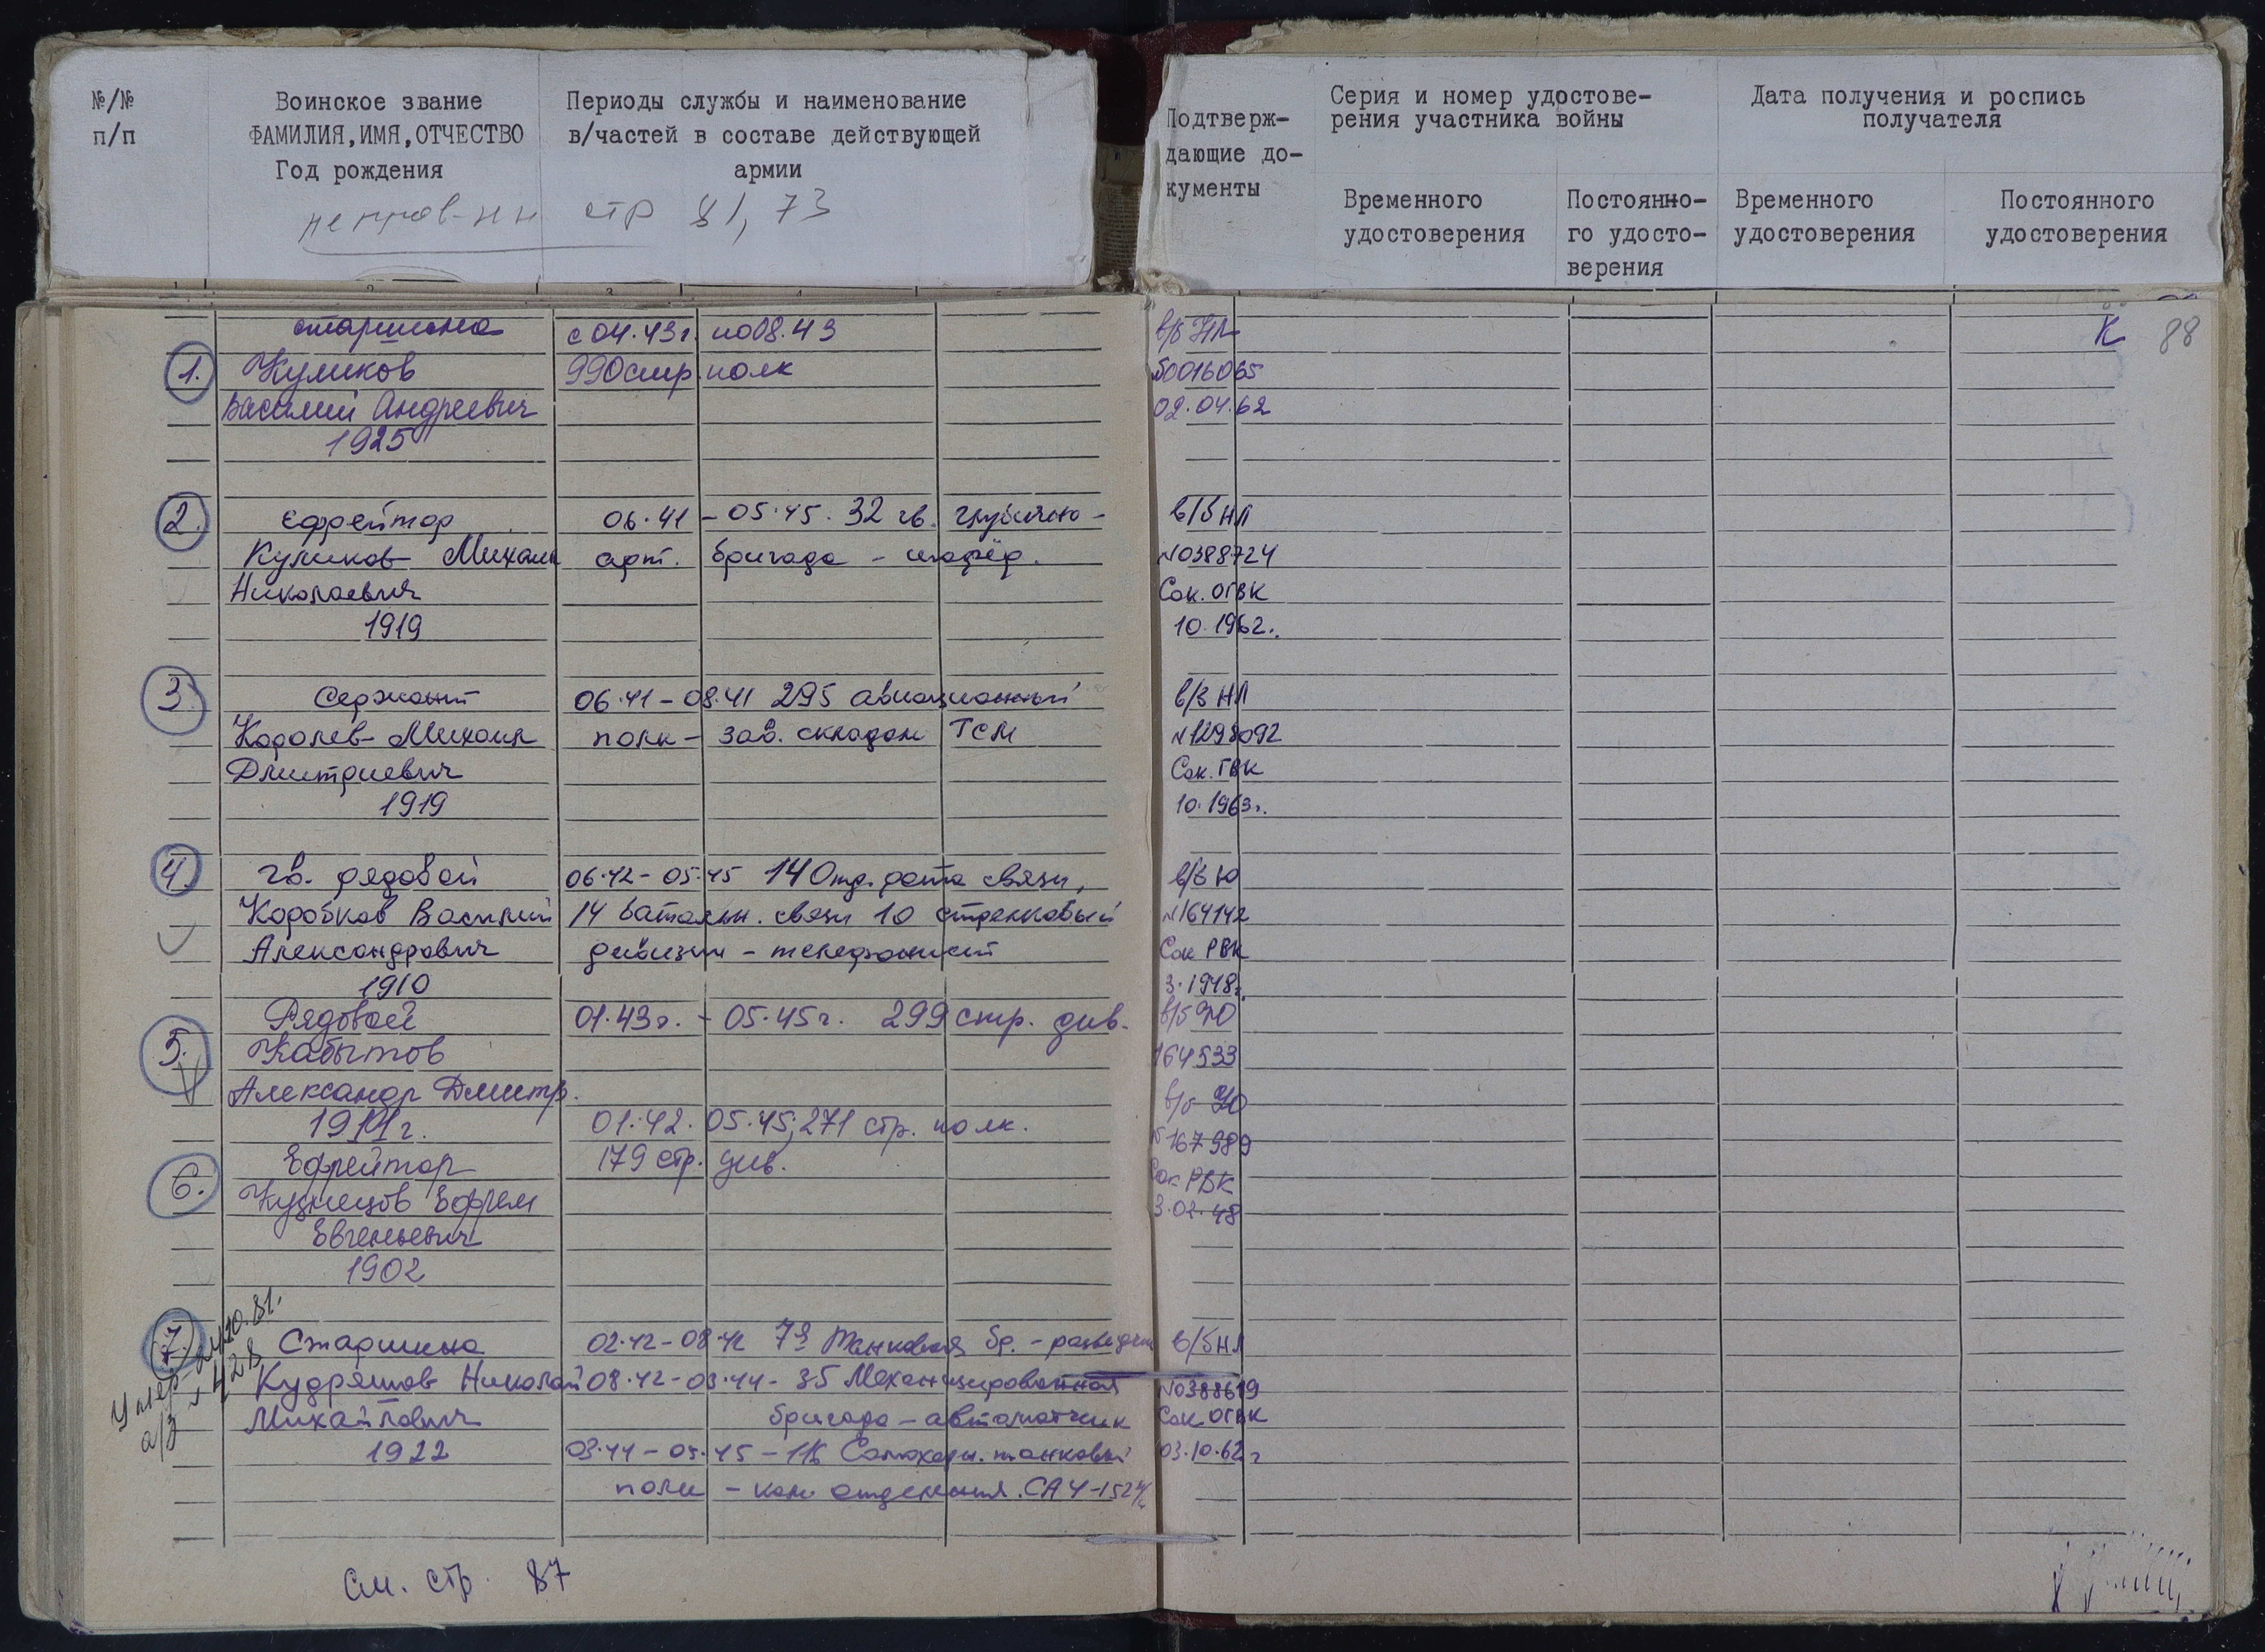 №/№
п/п
Воинское звание
ФАМИЛИЯ,ИМЯ,ОТЧЕСТВО
Год рождения
Периоды службы и наименование
в/частей в составе действующей
армии
стр 81, 73
Подтверж-
дающие до-
кументы
Серия и номер удостове-
рения участника войны
Временного
удостоверения
Постоянно-
го удосто-
верения
Дата получения и роспись
получателя
Временного
удостоверения
Постоянного
удостоверения
К 88
старшина с 04.43г. по 08.43 в/б НЛ
1. Куликов 990 стр. полк 50016065
Василий Андреевич 02.04.62
1925
2. ефрейтор 06.41 - 05.45. 32 гв. гаубично- в/б НЛ
Куликов Михаил арт. бригада - шофёр. №0388724
Николаевич Сок. ОГВК
1919 10.1962г.
3. Сержант 06.41 - 08.41 295 авиационный в/б НЛ
Королев Михаил полк - зав. складом ГСМ №1298092
Дмитриевич Сок. ГВК
1919 10.1963г.
4. гв. рядовой 06.42 - 05.45 14 Отд. рота связи, в/б Ю
Коробков Василий 14 батальн. связи 10 стрелковый №164142
Александрович дивизии - телефонист Сок РВК
1910 3.1948г.
Рядовой 01.43г. - 05.45г. 299 стр. див. в/б Ю
5. Кабытов 164533
Александр Дмитр. в/б Ю
1911г. 01.42. 05.45; 271 стр. полк. №167989
6. Ефрейтор 179 стр. див. Сок РВК
Кузнецов Ефрем 3.02.48
Евгеньевич
1902
7. Старшина 02.42 - 08.42 7я Танковая бр. - разведчик в/б НЛ
Кудряшов Николай 08.42 - 03.44 - 35 Механизированная №0388619
Михайлович бригада - автоматчик Сок ОГВК
1922 03.44 - 05.45 - 116 Самоходн. танковый 03.10.62г
полк - ком отделения. САУ-152
Умер
а/з № 428
См. стр. 87